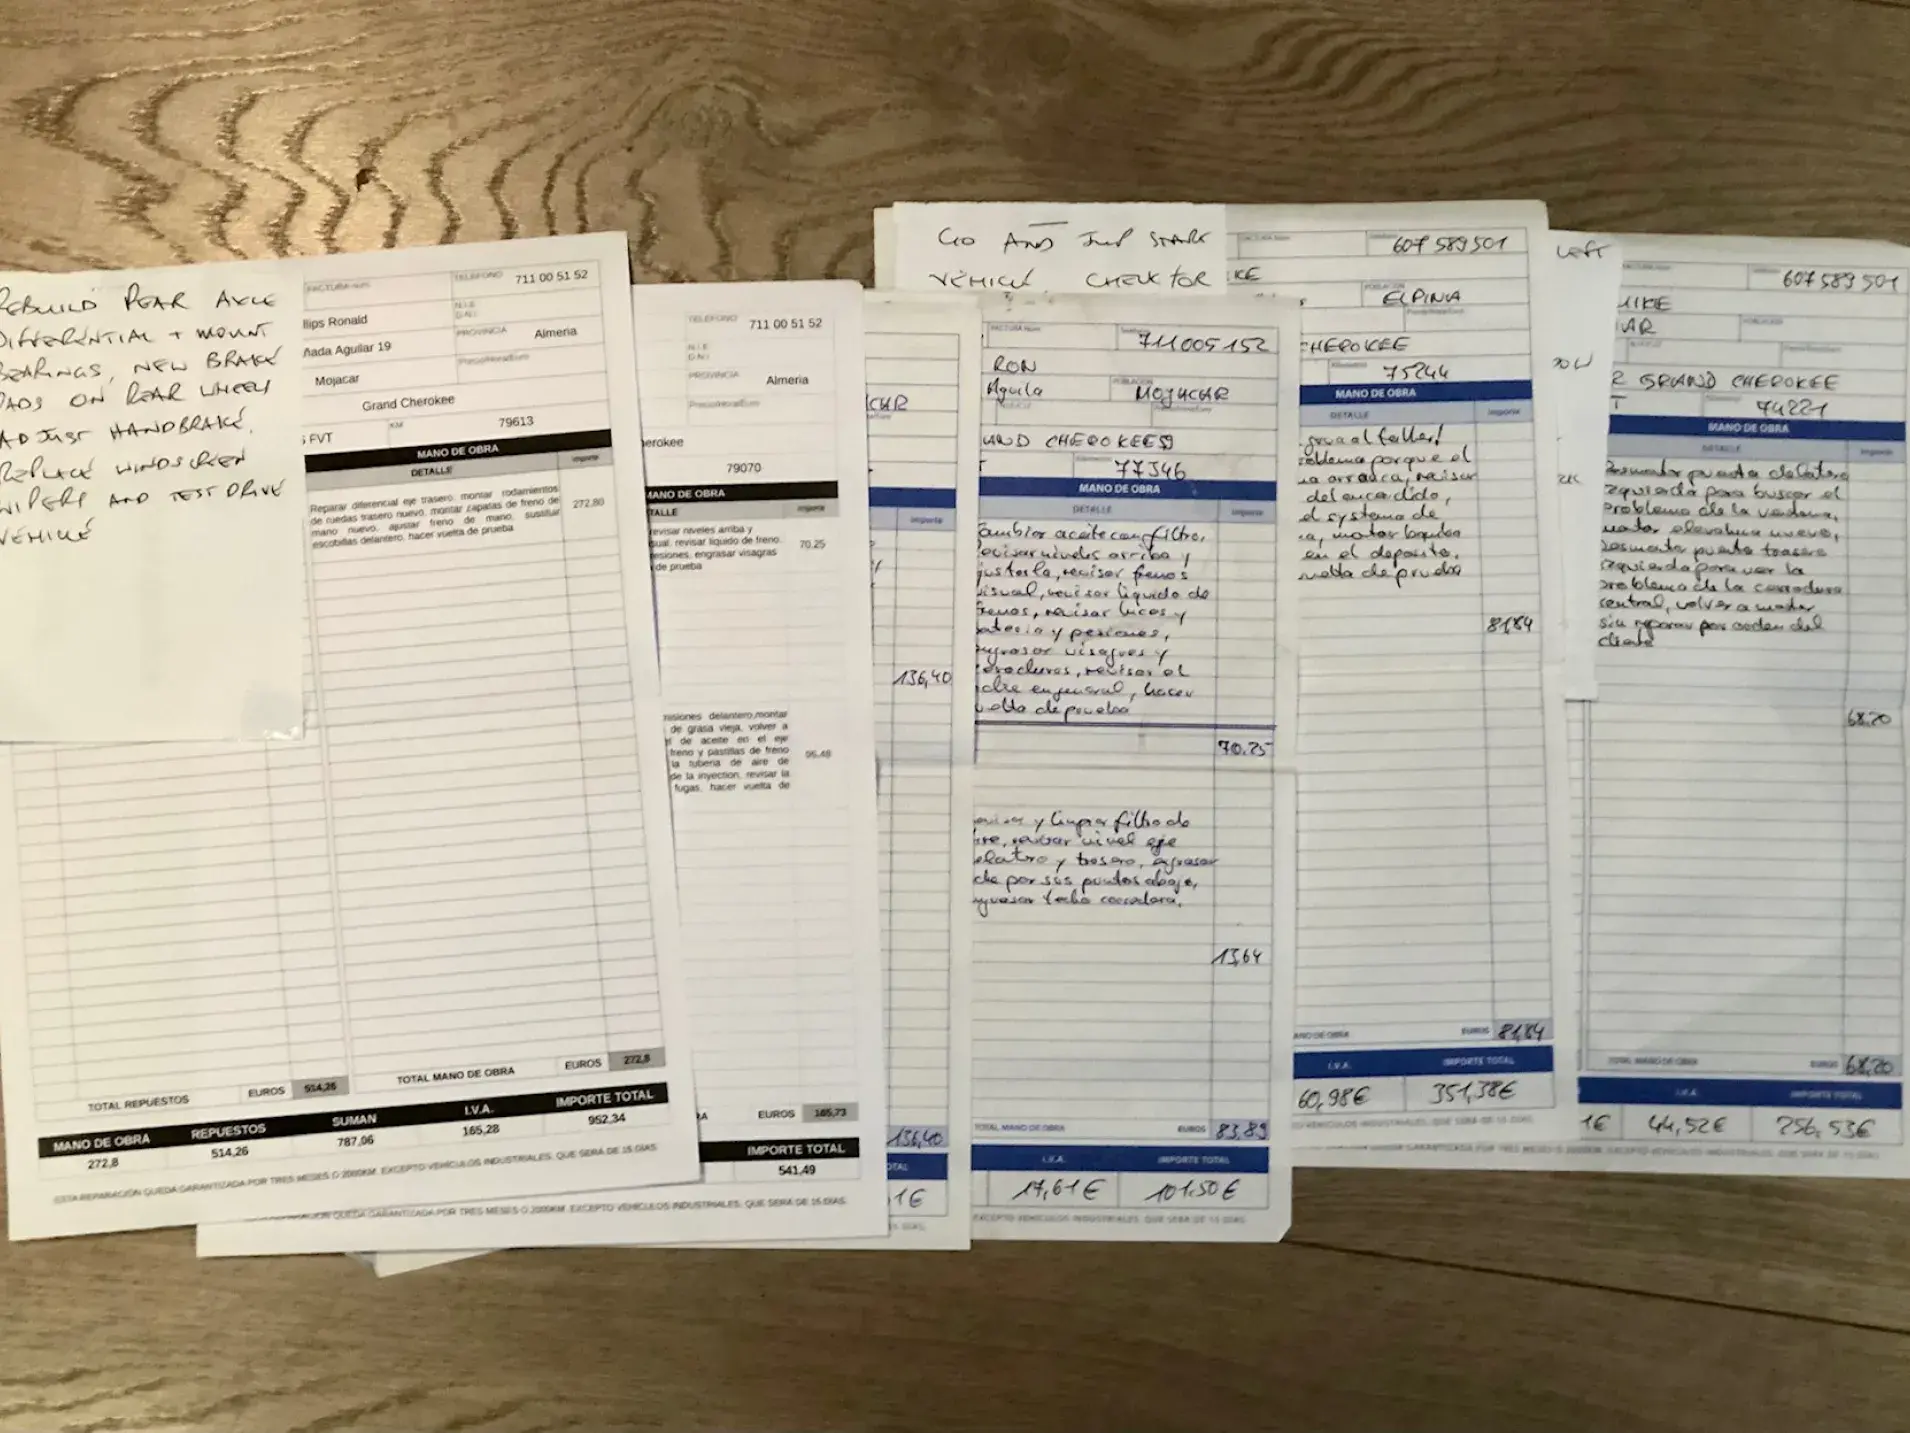 REBUILD REAR AXLE
DIFFERENTIAL + MOUNT
BEARINGS, NEW BRAKE
PADS ON REAR WHEELS
ADJUST HANDBRAKE.
REPLACE WINDSCREEN
WIPERS AND TEST DRIVE
VEHICLE
FACTURA Núm
TELEFONO 711 00 51 52
llips Ronald
N.I.E.
D.N.I.
ñada Aguilar 19
PROVINCIA Almeria
Mojacar
Precio/Hora/Euro
Grand Cherokee
FVT
KM 79613
MANO DE OBRA
DETALLE
importe
Reparar diferencial eje trasero, montar rodamientos
de ruedas trasero nuevo, montar zapatas de freno de
mano nuevo, ajustar freno de mano, sustituir
escobillas delantero, hacer vuelta de prueba
272,80
TOTAL REPUESTOS EUROS 514,26
TOTAL MANO DE OBRA EUROS 272,8
MANO DE OBRA REPUESTOS SUMAN I.V.A. IMPORTE TOTAL
272,8 514,26 787,06 165,28 952,34
ESTA REPARACIÓN QUEDA GARANTIZADA POR TRES MESES O 2000KM. EXCEPTO VEHICULOS INDUSTRIALES, QUE SERA DE 15 DIAS.
TELEFONO 711 00 51 52
N.I.E.
D.N.I.
PROVINCIA Almeria
Precio/Hora/Euro
erokee
79070
MANO DE OBRA
TALLE
importe
revisar niveles arriba y
sual, revisar liquido de freno,
esiones, engrasar visagras
de prueba
70.25
misiones delantero,montar
de grasa vieja, volver a
el de aceite en el eje
freno y pastillas de freno
la tuberia de aire de
de la inyection, revisar la
fugas, hacer vuelta de
95,48
RA EUROS 165,73
IMPORTE TOTAL
541,49
REPARACIÓN QUEDA GARANTIZADA POR TRES MESES O 2000KM. EXCEPTO VEHICULOS INDUSTRIALES, QUE SERA DE 15 DIAS.
CAR
importe
136,40
136,40
OTAL
1€
FACTURA Núm
711005152
RON
Aguila
POBLACION MOJACAR
AND CHEROKEE
77346
MANO DE OBRA
DETALLE
importe
Cambiar aceite con filtro,
revisar niveles arriba y
justarla, revisar frenos
visual, revisar liquido de
frenos, revisar luces y
bateria y presiones,
engrasar visagras y
cerraduras, revisar el
oche en general, hacer
vuelta de prueba
70.25
revisar y limpiar filtro de
ire, revisar nivel eje
elatero y trasero, engrasar
che por sus puntos abajo,
engrasar techo corredera.
13,64
TOTAL MANO DE OBRA EUROS 83,89
I.V.A. IMPORTE TOTAL
17,61€ 101.50€
EXCEPTO VEHICULOS INDUSTRIALES, QUE SERA DE 15 DIAS.
GO AND JUMP START
VEHICLE. CHECK FOR
FACTURA Núm
607 589 501
KE
POBLACION
ELPINIA
CHEROKEE
75244
MANO DE OBRA
DETALLE
importe
grua al taller!
oblema porque el
a arranca, revisar
del encendido,
el systema de
en el deposito,
vuelta de prueba
81,84
MANO DE OBRA EUROS 81,84
I.V.A. IMPORTE TOTAL
60,98€ 351,38€
LEFT
FACTURA Núm
607 589 501
MIKE
AR
GRAND CHEROKEE
T
74221
MANO DE OBRA
DETALLE
importe
Desmontar puerta delatera
izquierda para buscar el
problema de la ventana,
montar elevaluna nuevo,
desmontar puerta trasera
izquierda para ver la
problema de la cerradura
central, volver a montar
sin reparar por orden del
cliente
68,20
TOTAL MANO DE OBRA EUROS 68,20
I.V.A. IMPORTE TOTAL
1€ 44,52€ 256,53€